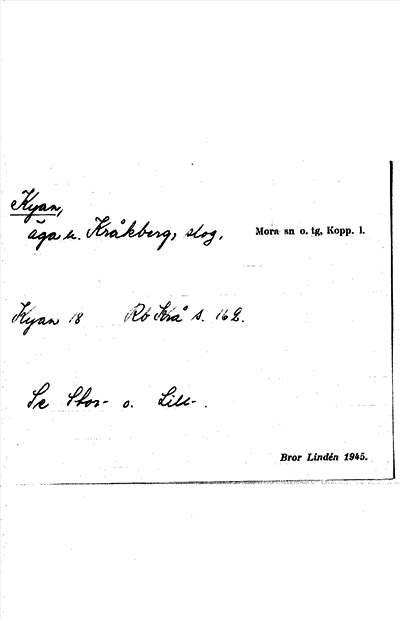 Kyan,
äga u. Kråkberg, slog.
Mora sn o. tg, Kopp. l.
Kyan 18 Rb Krå s. 162.
Se Stor- o. Lill-.
Bror Lindén 1945.